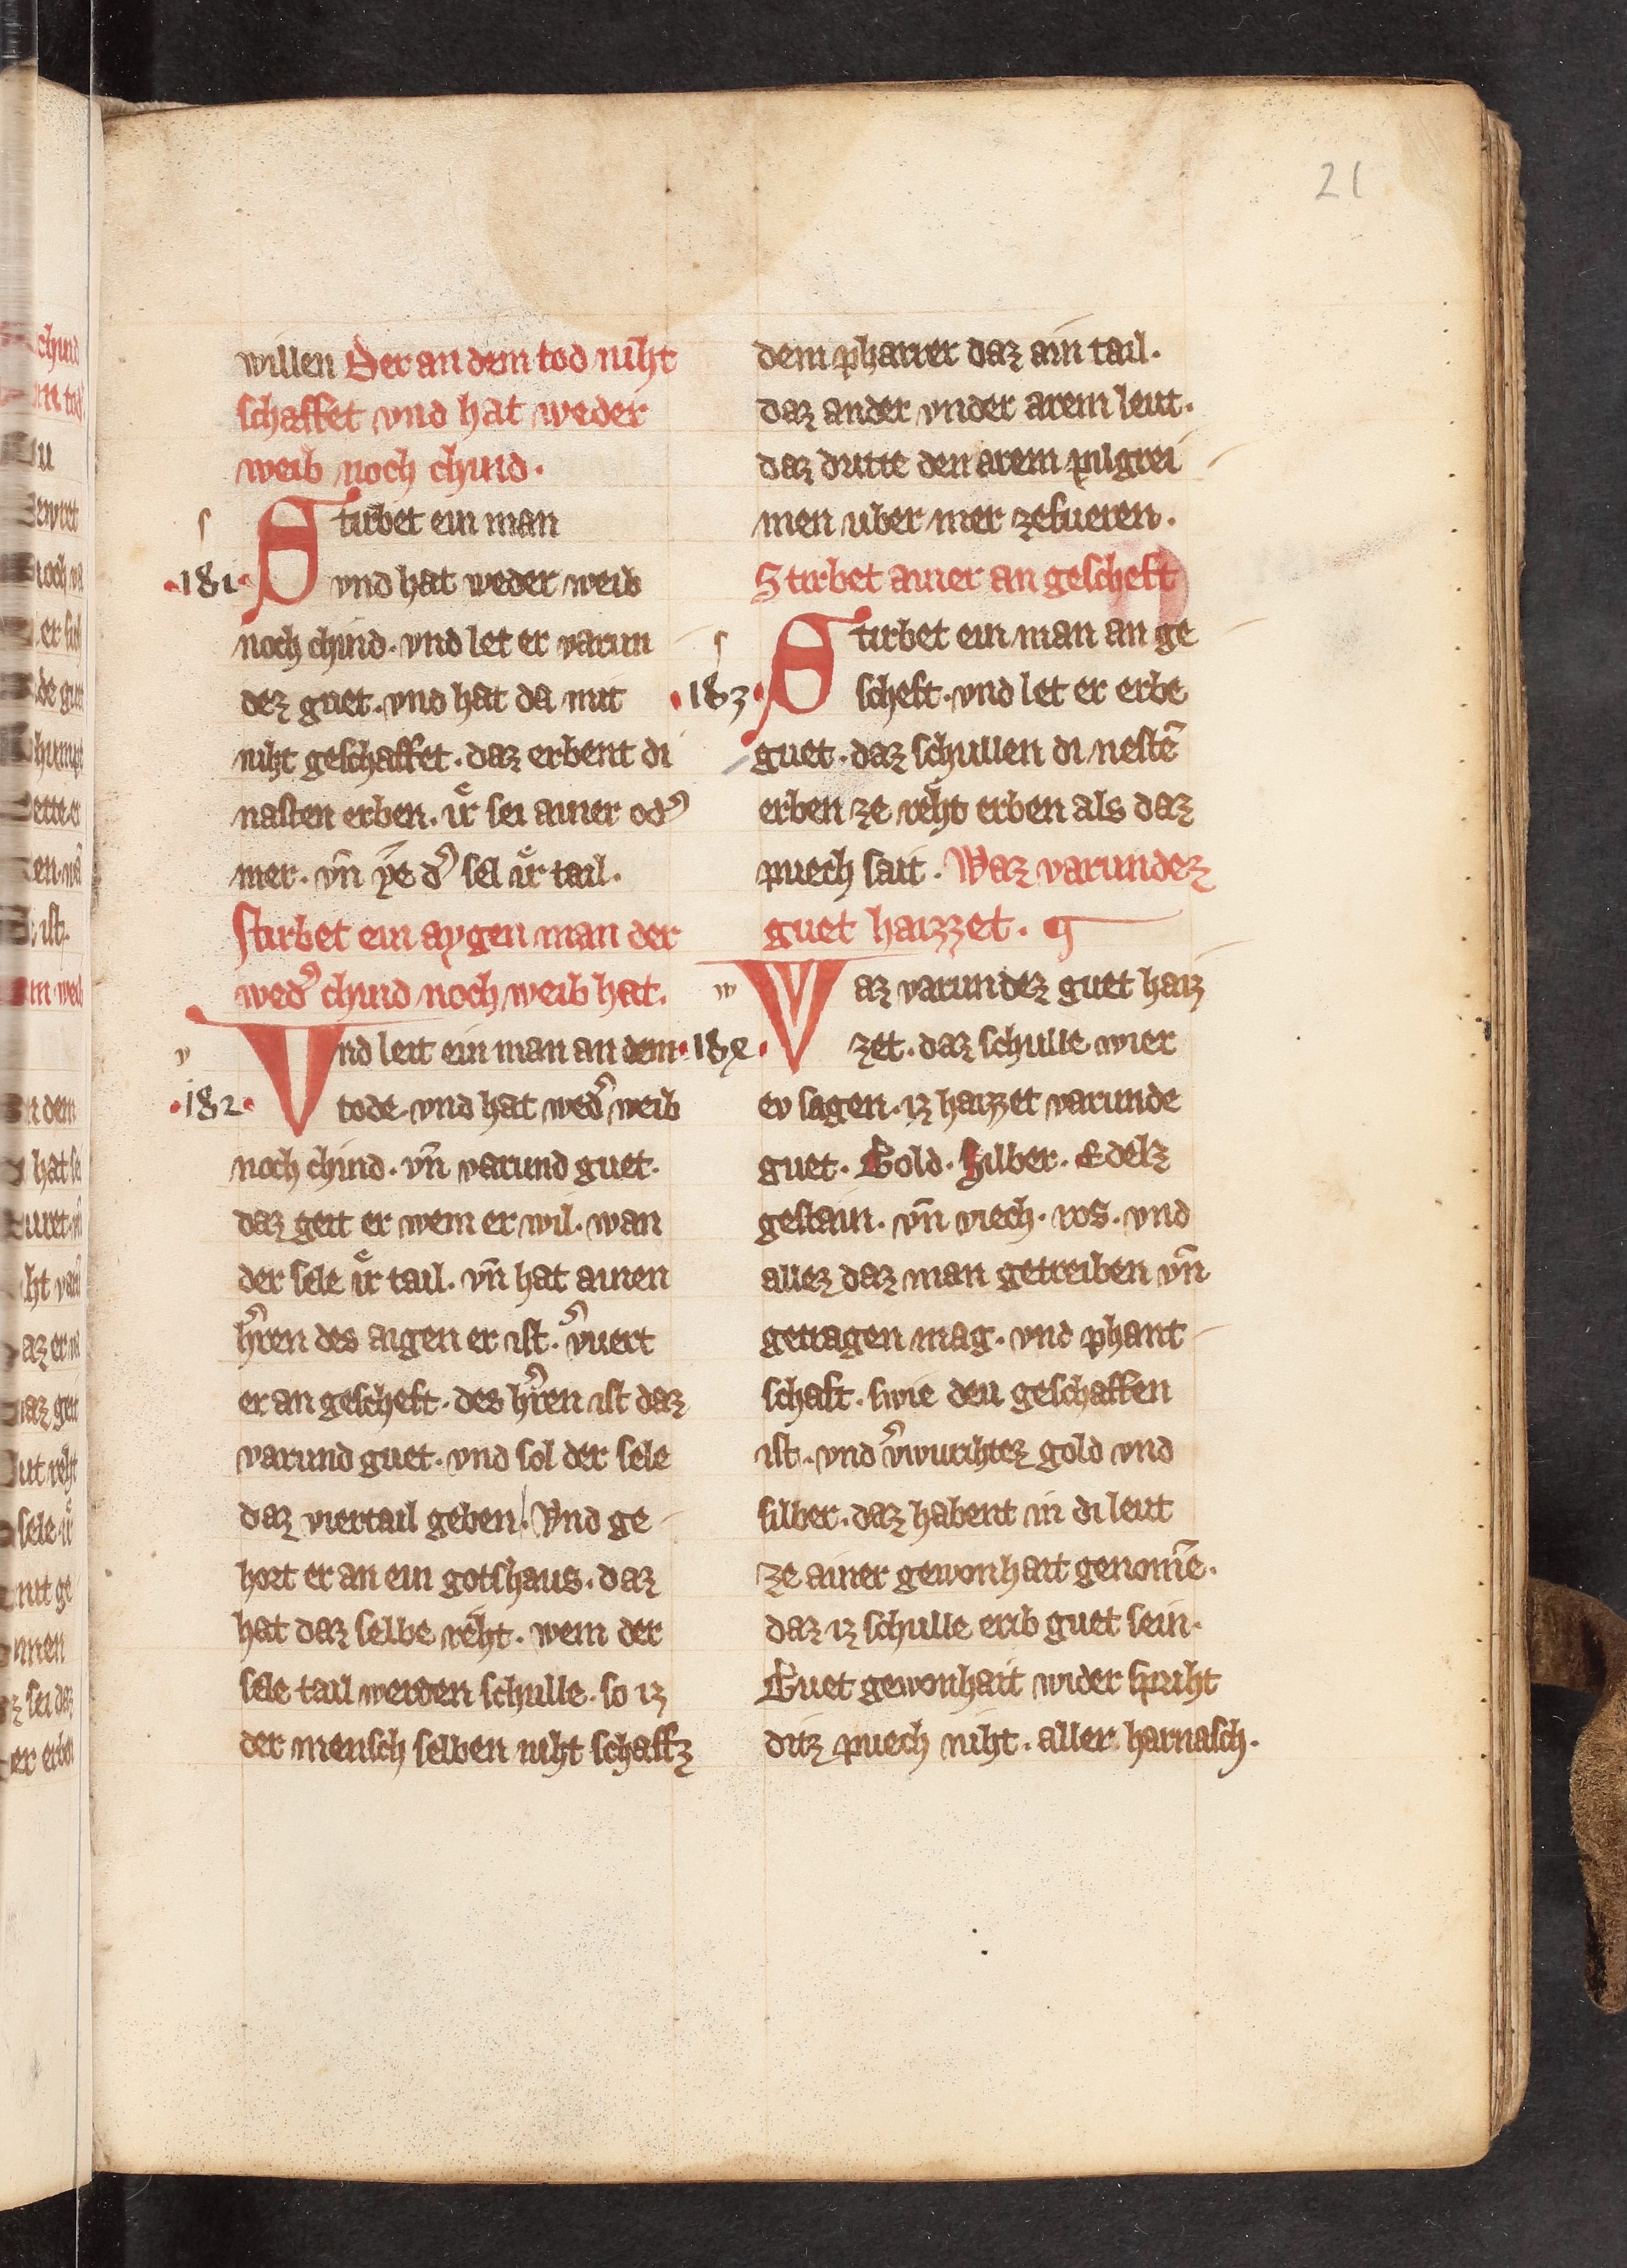 21
willen Der an dem tod niht
schaffet vnd hat weder
weib noch chind.
Stirbet ein man
·181· vnd hat weder weib
noch chind. vnd let er varun
dez guet. vnd hat da mit
niht geschaffet. daz erbent di
nasten erben. ir sei ainer od᾽
mer. vn̄ ye d᾽ sel ir tail.
Stirbet ein aygen man der
wed᾽ chind noch weib hat.
Vnd leit ein man an dem
·182· tode. vnd hat wed᾽ weib
noch chind. vn̄ varund guet.
daz geit er wem er wil. wan
der sele ir tail. vn̄ hat ainen
h᾽ren des aigen er ist. v᾽uert
er an gescheft. des h᾽ren ist daz
varund guet. vnd sol der sele
daz viertail geben. Vnd ge
hort er an ein gotshaus. daz
hat daz selbe reht. wem der
sele tail werden schulle. so iz
der mensch selben niht schaffz
dem pharrer daz ain tail.
daz ander vnder arem leut.
daz dritte den arem pilgrei
men uber mer zefueren.
Stirbet ainer an gescheft
Stirbet ein man an ge
·183· scheft. vnd let er erbe
guet. daz schullen di nestē
erben ze reht erben als daz
puech sait. Waz varundez
guet haizzet.
Waz varundez guet haiz
·184· zet. daz schulle wier
ev sagen. iz haizzet varunde
guet. Gold. Silber. Edelz
gestain. vn̄ viech. ros. vnd
allez daz man getreiben vn̄
getragen mag. vnd phant
schaft. swie deu geschaffen
ist. vnd v᾽wurihtez gold vnd
silber. daz habent in di leut
ze ainer gewonhait genomē.
daz iz schulle erib guet sein.
Guet gewonhait wider spriht
ditz puech niht. aller harnasch.